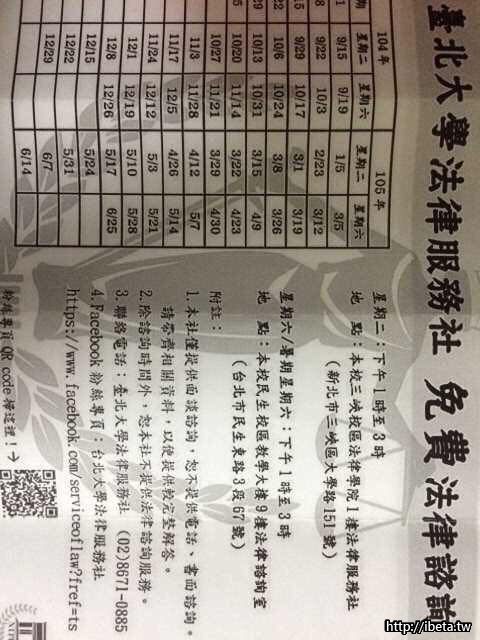 臺北大學法律服務社 免費法律諮詢
104年 105年
星期二 星期六 星期二 星期六
9/15 9/19 1/5 3/5
9/22 10/3 2/23 3/12
9/29 10/17 3/1 3/19
10/6 10/24 3/8 3/26
10/13 10/31 3/15 4/9
10/20 11/14 3/22 4/23
10/27 11/21 3/29 4/30
11/3 11/28 4/12 5/7
11/17 12/5 4/26 5/14
11/24 12/12 5/3 5/21
12/1 12/19 5/10 5/28
12/8 12/26 5/17 6/25
12/15 5/24
12/22 5/31
12/29 6/7
6/14
星期二：下午1時至3時
地 點：本校三峽校區法律學院1樓法律服務社
（新北市三峽區大學路151號）
星期六/暑期星期六：下午1時至3時
地 點：本校民生校區教學大樓9樓法律諮詢室
（台北市民生東路3段67號）
附註：
1.本社僅提供面談諮詢，恕不提供電話、書面諮詢。
請帶齊相關資料，以便提供較完整解答。
2.除諮詢時間外，恕本社不提供法律諮詢服務。
3.聯絡電話：臺北大學法律服務社 (02)8671-0885
4.Facebook粉絲專頁：台北大學法律服務社
https://www.facebook.com/serviceoflaw?fref=ts
粉絲專頁QR code掃這裡！→
http://ibeta.tw